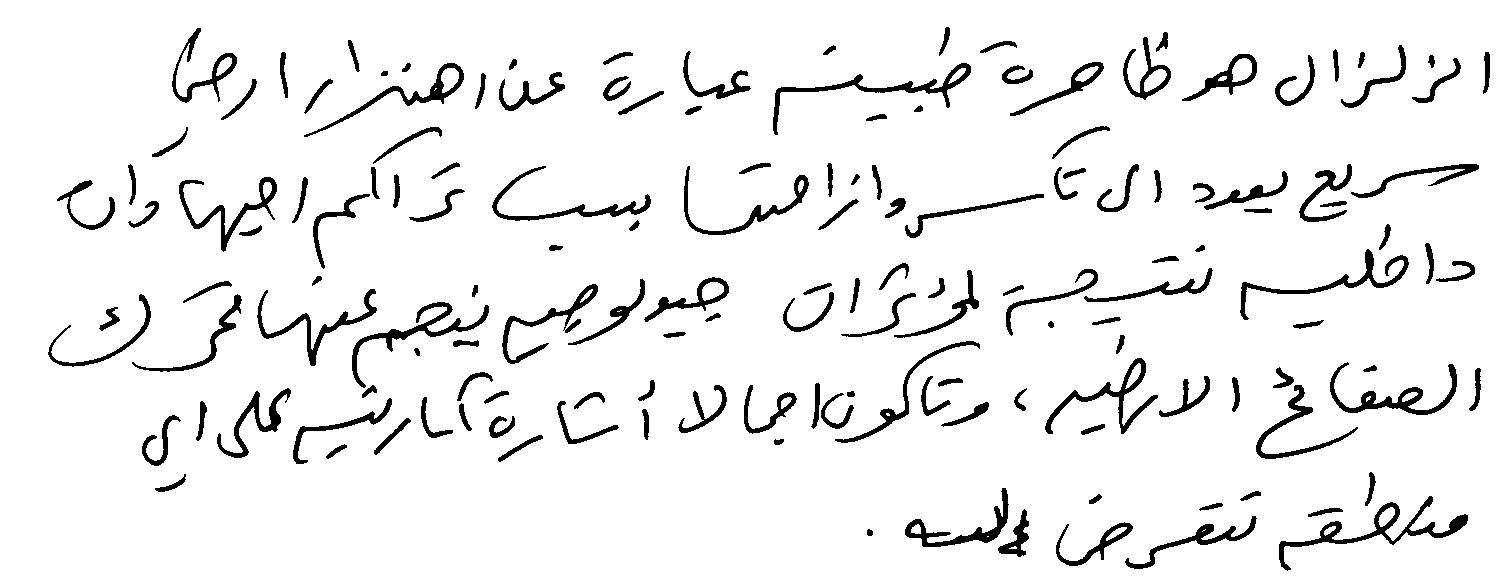 الزلزال هو ظاهرة طبيعيه عبارة عن اهتزاز ارضي
سريع يعود الى تكسر وازاحتها بسبب تراكم اجهادات
داخليه نتيجة لمؤثرات جيولوجيه ينجم عنها تحرك
الصفائح الارضيه، وتاكون اجمالا أشارة كارثيه على اي
منطقه تتعرض